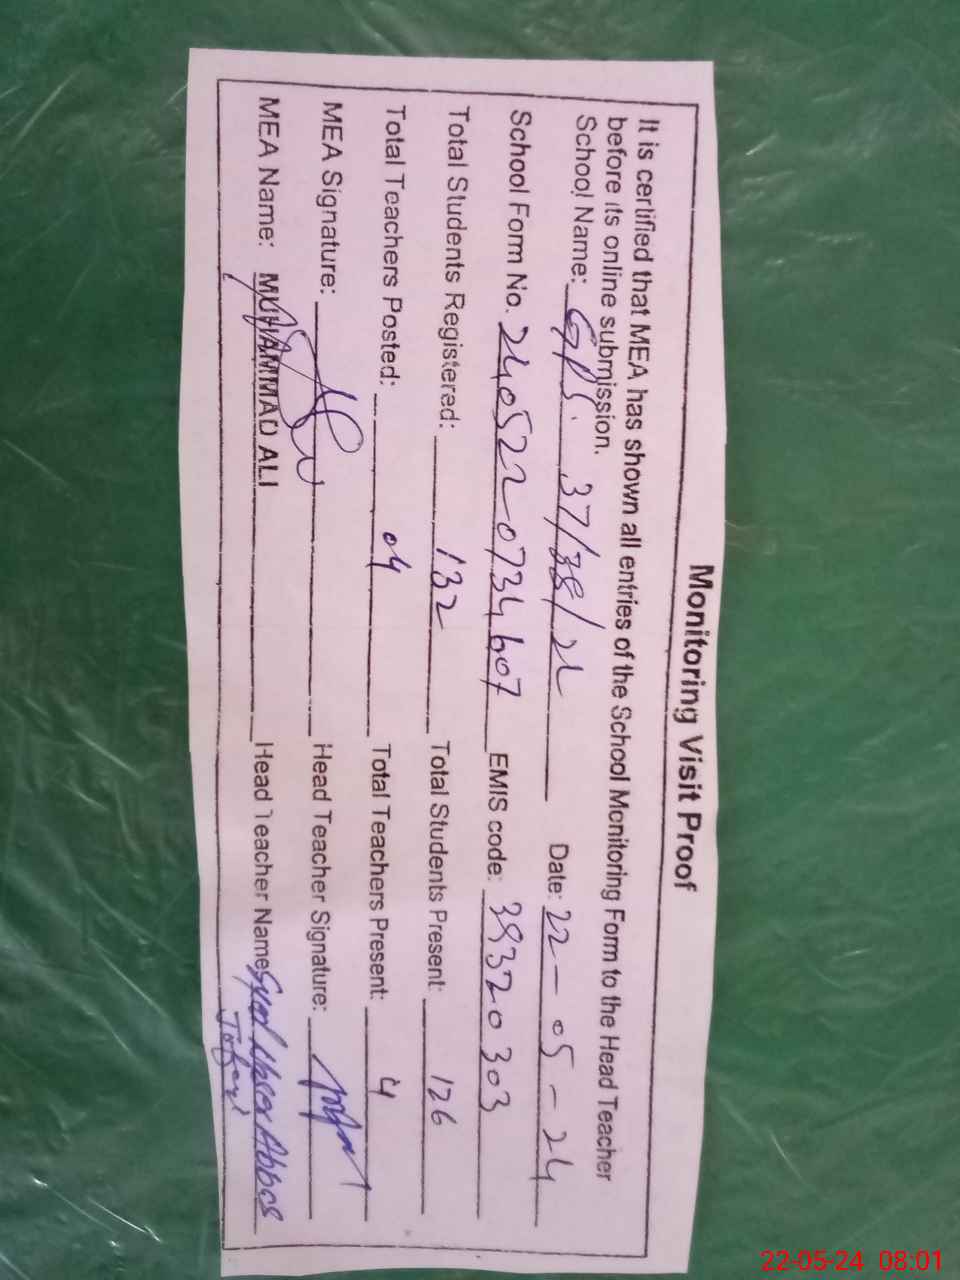 Monitoring Visit Proof
It is certified that MEA has shown all entries of the School Monitoring Form to the Head Teacher
before its online submission.
School Name: GPS. 37/38/2L Date: 22-05-24
School Form No. 240522-0734607 EMIS code: 39320303
Total Students Registered: 132 Total Students Present: 126
Total Teachers Posted: 04 Total Teachers Present: 4
MEA Signature: Head Teacher Signature:
MEA Name: MUHAMMAD ALI Head Teacher Name: Syed Abbas
22-05-24 08:01